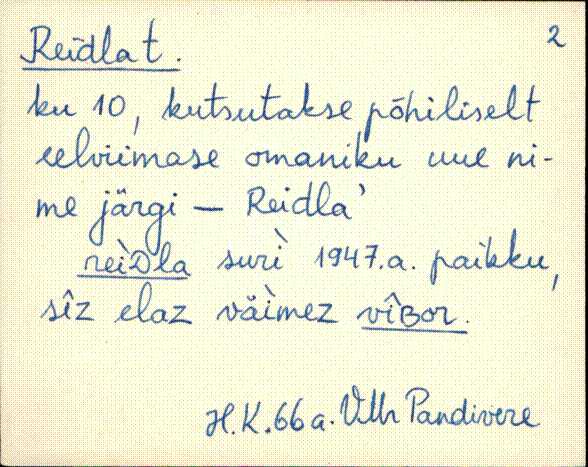 Reidlat.
2
ku 10, kutsutakse põhiliselt
eelviimase omaniku uue ni-
me järgi — Reidla'
reìᴅla suri̇̀ 1947.a. paikku,
sîz elaz väìmez vîʙor.
H.K. 66 a. VMr Pandivere